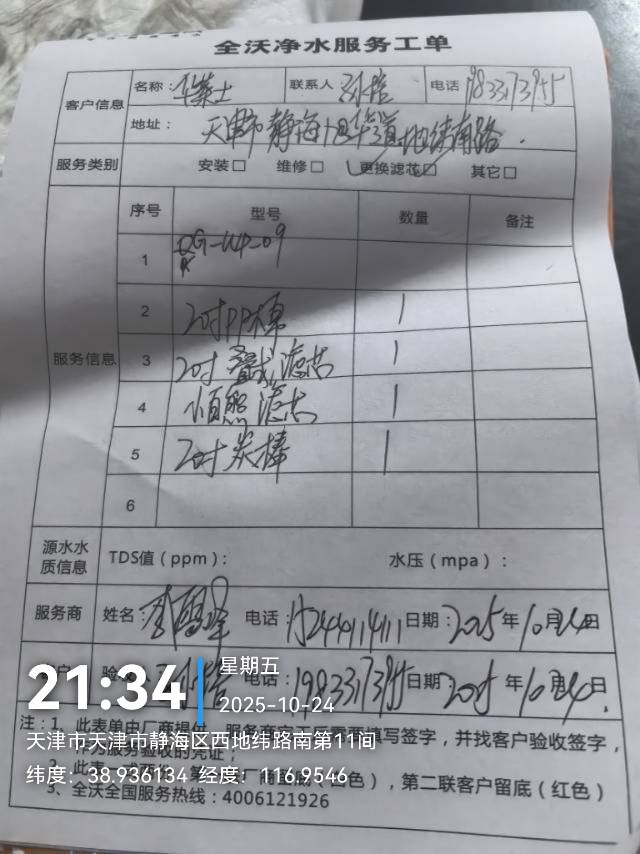 全沃净水服务工单
客户信息 名称：华莱士 联系人 电话
地址：天津市静海旭华道地纬南路.
服务类别 安装□ 维修□ 更换滤芯□ 其它□
服务信息
序号 型号 数量 备注
1
2 20寸PP棉 1
3 20寸 滤芯 1
4 滤芯 1
5 20寸炭棒 1
6
源水水质信息 TDS值（ppm）： 水压（mpa）：
服务商 姓名： 电话：15244114111 日期：2025年10月24日
电话：19833173955 日期 2025年10月24日.
21:34
星期五
2025-10-24
天津市天津市静海区西地纬路南第11间
纬度：38.936134 经度：116.9546
注：1、此表单由厂商提供，服务商 填写签字，并找客户验收签字，
服务验收的凭证；
2、此表 色），第二联客户留底（红色）
3、全沃全国服务热线：4006121926